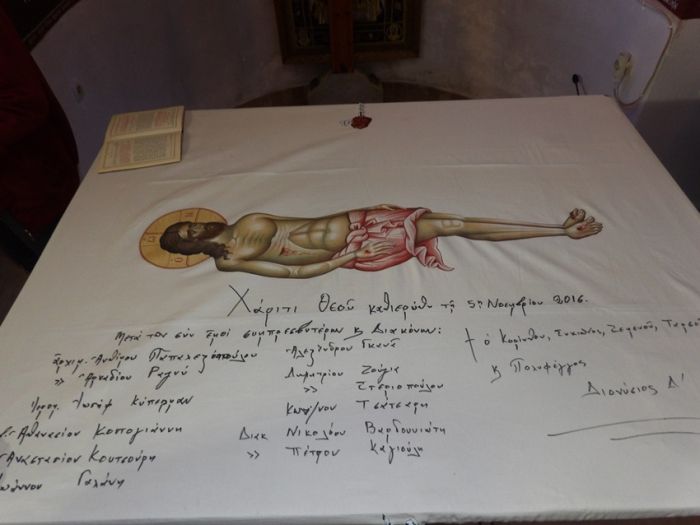 Χάριτι Θεοῦ καθιερώθη τῇ 5ῃ Νοεμβρίου 2016.
Μετά τῶν σύν ἐμοί συμπρεσβυτέρων κ Διακόνων:
ἀρχιμ. Ἀνθίμου Παπαλεξοπούλου
» Ἀρκαδίου Ραγιά
Ἰωσήφ Κύπεργαν
Ἀθανασίου Κοπογιάννη
Ἀναστασίου Κουτσούρη
Ἰωάννου Γαλάνη
Ἀλεξάνδρου Γκανᾶ
Δημητρίου Ζούγια
» Στεριοπούλου
Κων/νου Τσάτσαρη
Διακ Νικολάου Βαρδουνιώτη
» Πέτρου Καγιούλη
† ὁ Κορίνθου, Σικυῶνος, Ζεμενοῦ, Ταρσοῦ
κ Πολυφέγγος
Διονύσιος Δ'